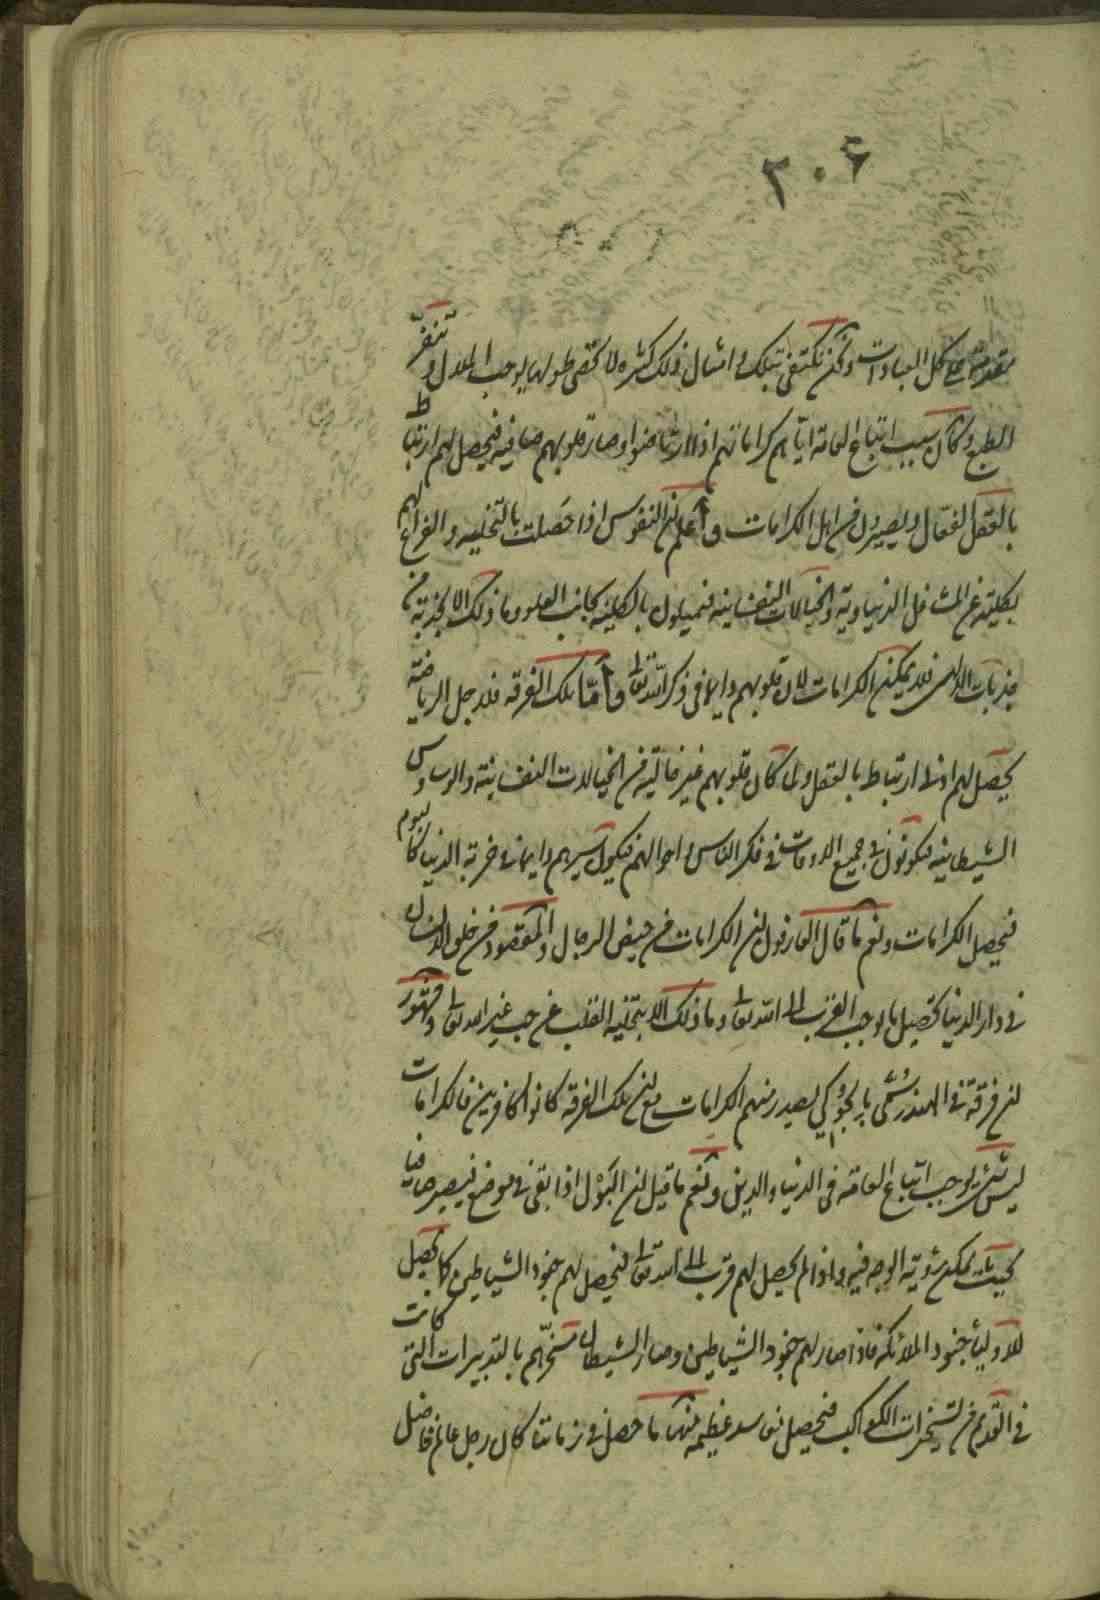 ۲۰۶
مقدمة على كل العبادات ولكن نكتفى بتلك وامثال ذلك كثيرة لا تحصى طولها يوجب الملال وتنفّر
الطبع وكان سبب اتباع العامة اياهم كراماتهم اذ الارتاضوا وصار قلوبهم صافية فيحصل لهم ارتباط
بالعقل الفعال ويصيرون من اهل الكرامات واعلم ان النفوس اذا حصلت بالتخلية والفراغ لهم
بكليته عن المشاغل الدنياوية والخيالات النفسانية فيميلون بالكلية بجانب العلو وما ذلك الا بجذبة من
جذبات الاله فلا يمكن الكرامات لان قلوبهم دايما فى ذكر الله تعالى واما تلك الفرقة فلاجل الرياضة
يحصل لهم ادنى ارتباط بالعقل ولما كان قلوبهم غير خالية من الخيالات النفسانية والوساوس
الشيطانية فيكونون فى جميع الاوقات فى فكر الناس واحوالهم فيكون سيرهم دايما فى خربة الدنيا كالبوم
فيحصل الكرامات ونعم ما قال العارفون ان الكرامات من حيض الرجال والمقصود من خلق الانسان
فى دار الدنيا تحصيل ما يوجب القرب الى الله تعالى وما ذلك الا بتخلية القلب عن حب غير الله تعالى ومشهور
ان فرقة فى الهند تسمى بالجوكى يصدر منهم الكرامات مع ان تلك الفرقة كانوا كافرين فالكرامات
ليس شئ يوجب اتباع العامة فى الدنيا والدين ونعم ما قيل ان البول اذا بقى فى موضع فيصير صافيا
بحيث يمكن رؤية الوجه فيه واذا لم يحصل لهم قرب الى الله تعالى فيحصل لهم جنود الشياطين كما يحصل
للاولياء جنود الملائكة فاذا صار لهم جنود الشياطين وصار الشيطان مسخرهم بالتدبيرات التى كانت
فى القديم من تسخيرات الكواكب فيحصل مفاسد عظيمة منها ما حصل فى زماننا كان رجل عالم فاضل